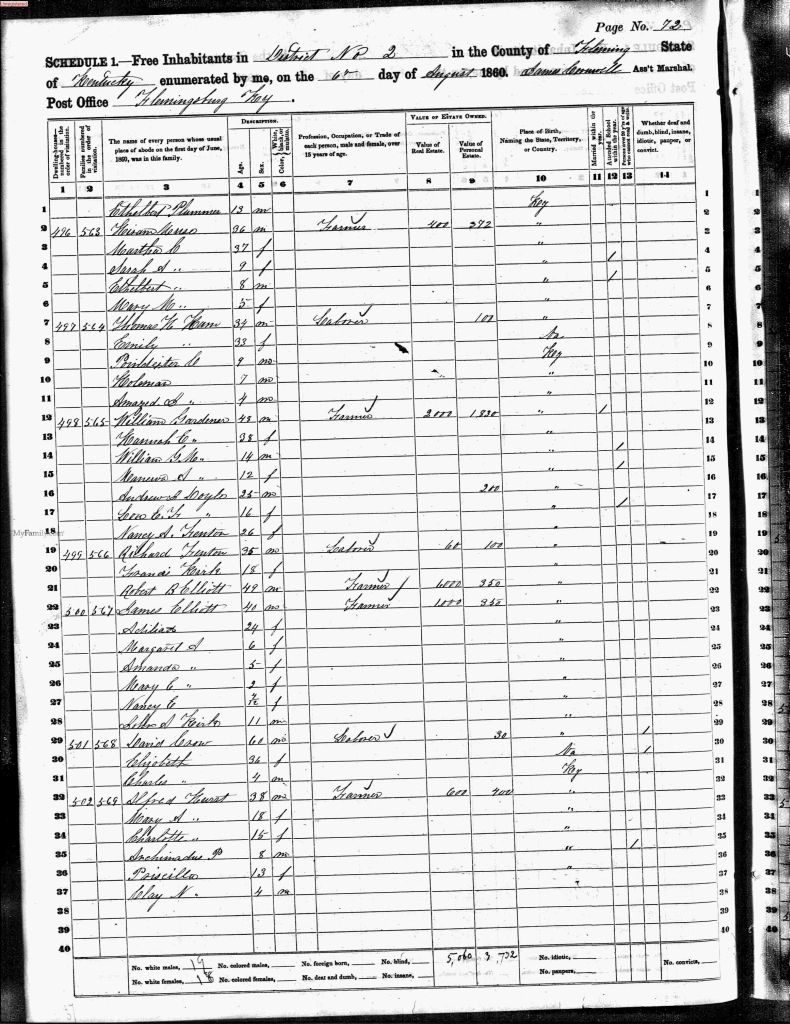 Page No. 72
SCHEDULE 1.—Free Inhabitants in District No 2 in the County of Fleming State
of Kentucky enumerated by me, on the 6th day of August 1860. James Ass't Marshal.
Post Office Flemingsburg Key.
Dwelling-house— numbered in the order of visitation.
Families numbered in the order of visitation.
The name of every person whose usual place of abode on the first day of June, 1860, was in this family.
DESCRIPTION.
Age.
Sex.
Color, White, black, or mulatto.
Profession, Occupation, or Trade of each person, male and female, over 15 years of age.
VALUE OF ESTATE OWNED.
Value of Real Estate.
Value of Personal Estate.
Place of Birth, Naming the State, Territory, or Country.
Married within the year.
Attended School within the year.
Whether deaf and dumb, blind, insane, idiotic, pauper, or convict.
1 2 3 4 5 6 7 8 9 10 11 12 13 14
1 Ethelbert Plummer 13 m Key 1
2 496 563 Hiram 36 m Farmer 400 272 " 2
3 Martha C 37 f " 3
4 Sarah A " 9 f " / 4
5 Ethelbert " 8 m " / 5
6 Mary M " 5 f " 6
7 497 564 Thomas H Ham 34 m Laborer 100 " 7
8 Emily " 33 f Va 8
9 Poindexter C 9 m Key 9
10 Holeman 7 m " 10
11 " 4 m " 11
12 498 565 William Gardener 43 m Farmer 2000 1,830 " / 12
13 Hannah C " 38 f " 13
14 William G M " 14 m " / 14
15 A " 12 f " / 15
16 Andrew Doyle 25 m 200 " 16
17 E. F " 16 f " / 17
18 Nancy A. Fenton 26 f " 18
19 499 566 Richard Fenton 35 m Laborer 60 100 " 19
20 Kirk 18 f " 20
21 Robert B Elliott 49 m Farmer 1,000 350 " 21
22 500 567 James Elliott 40 m Farmer 1000 350 " 22
23 24 f " 23
24 Margaret A 6 f " 24
25 Amanda " 5 f " 25
26 Mary C " 2 f " 26
27 Nancy C f " 27
28 John S Kirk 11 m " 28
29 501 568 David Crow 60 m Laborer 30 " / 29
30 Elizibeth 36 f Va / 30
31 Charles " 4 m Key 31
32 502 569 Alfred Hurst 38 m Farmer 600 400 " 32
33 Mary A " 18 f " 33
34 Charlotte " 15 f " 34
35 Archimadus P 8 m " / 35
36 Priscilla 13 f " 36
37 Clay N " 4 m 37
38 38
39 39
40 40
No. white males, 19 No. colored males, No. foreign born, No. blind, 5,060 3,732 No. idiotic, No. convicts,
No. white females, 18 No. colored females, No. deaf and dumb, No. insane, No. paupers,
MyFamily.com